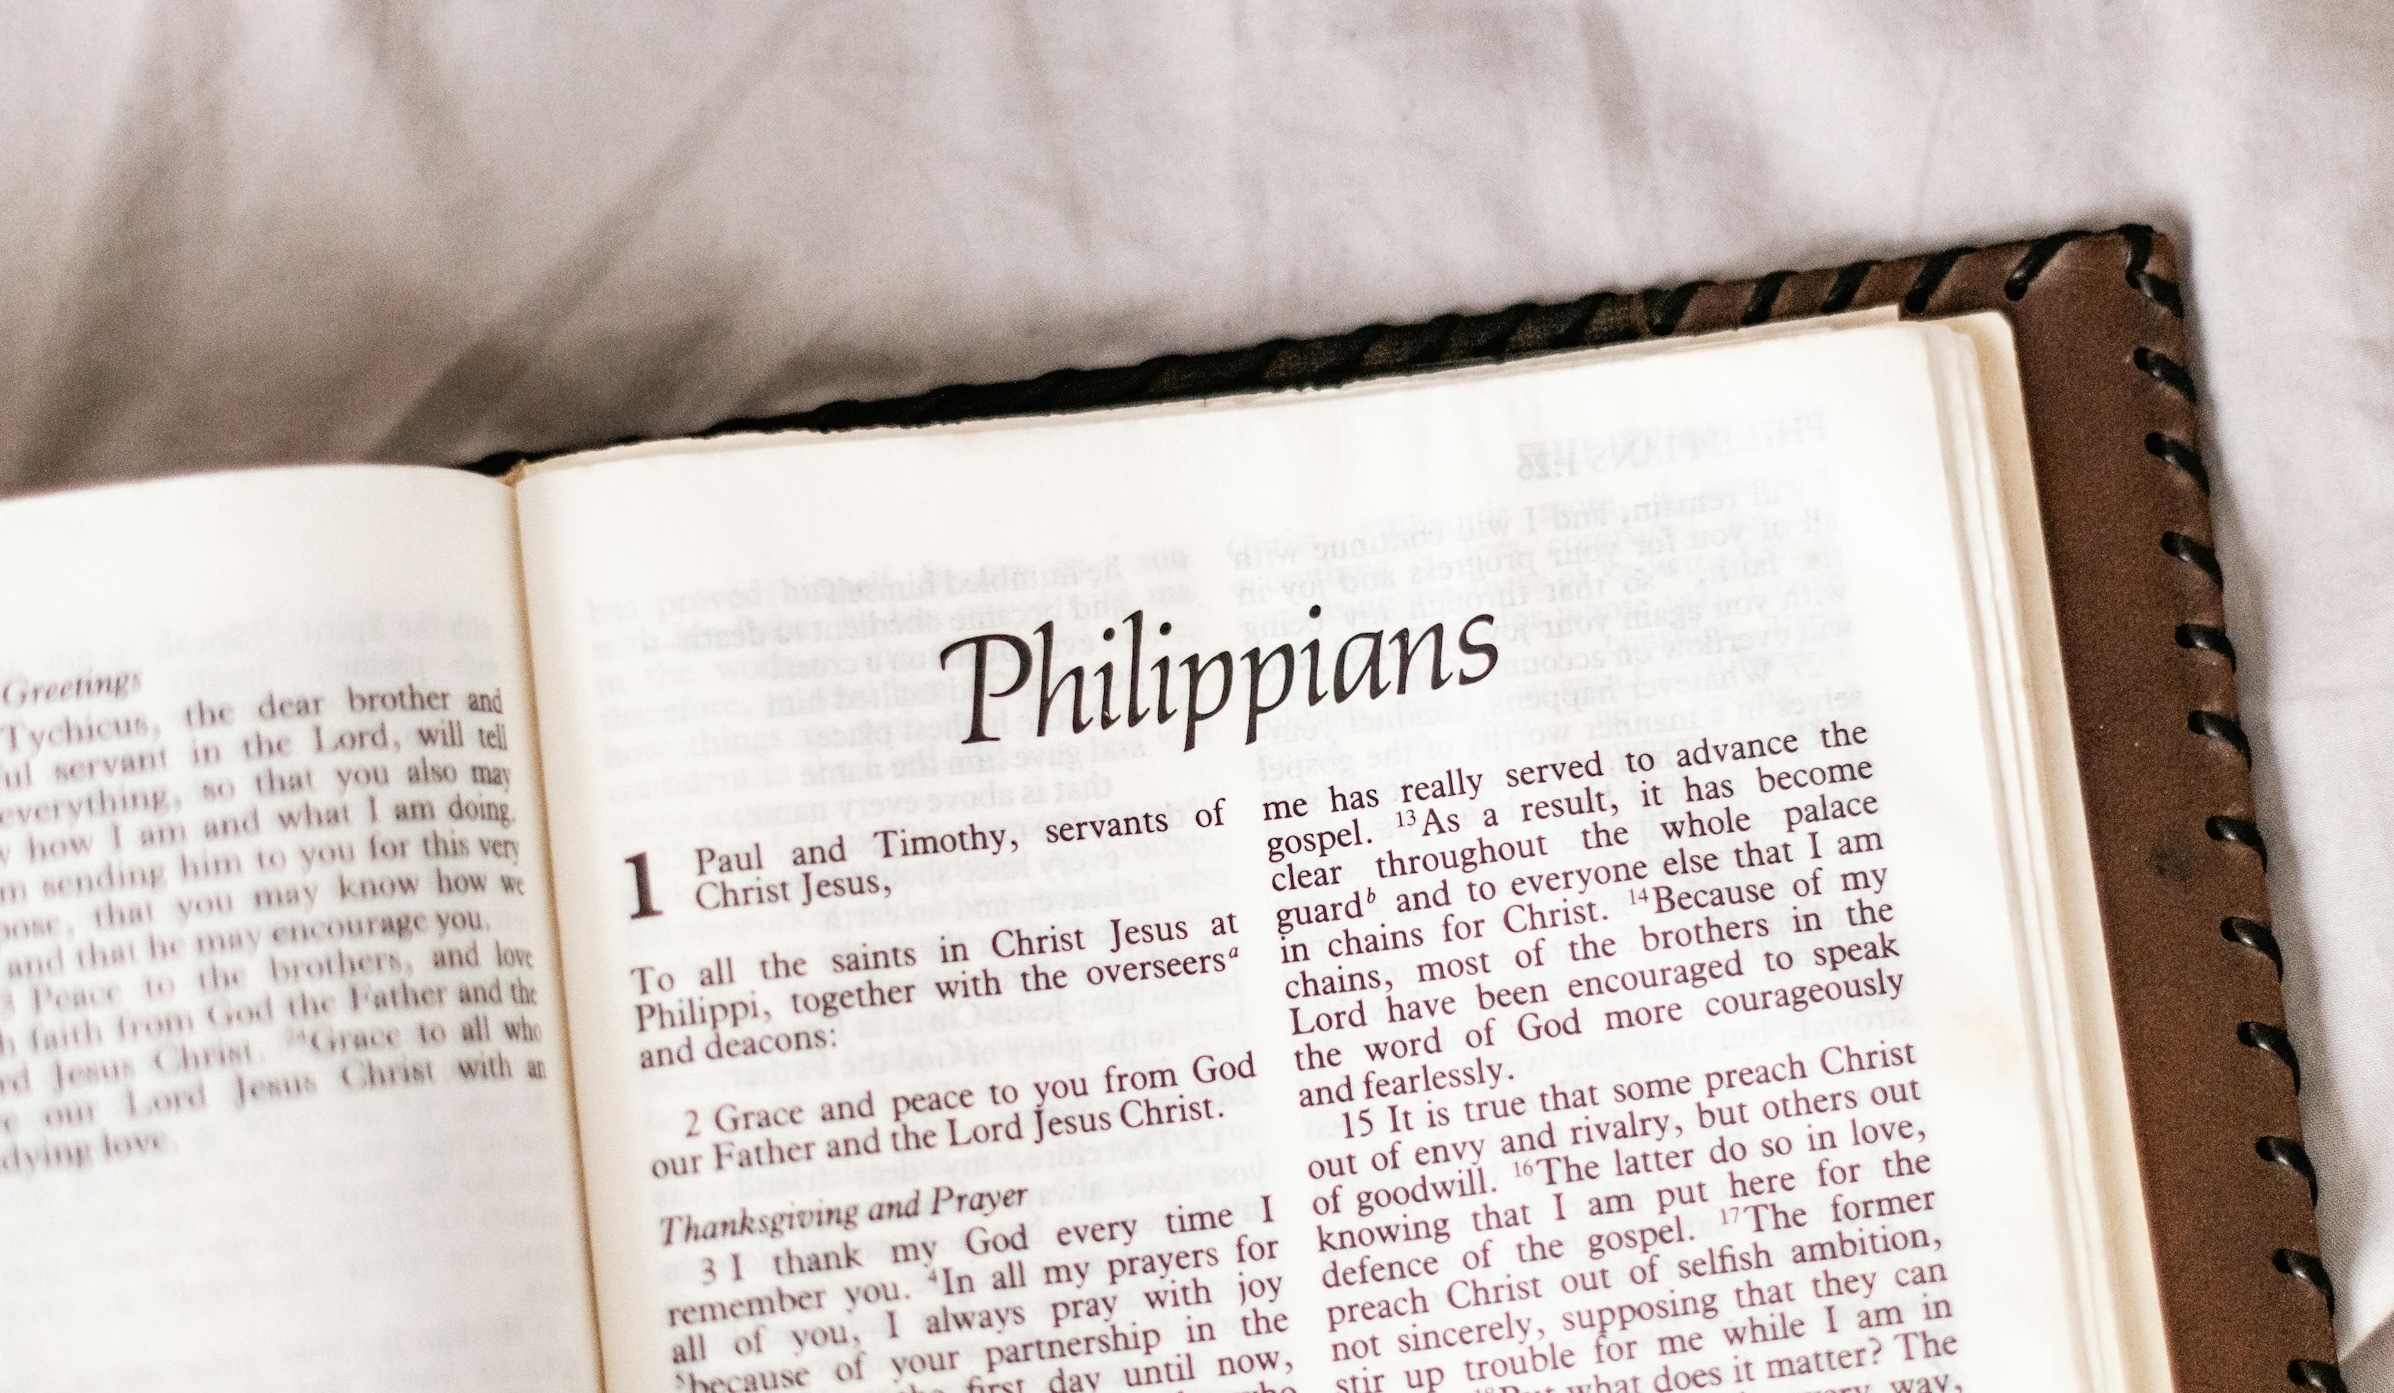 Greetings
Tychicus, the dear brother and
servant in the Lord, will tell
everything, so that you also may
how I am and what I am doing.
sending him to you for this very
that you may know how we
and that he may encourage you.
Peace to the brothers, and love
faith from God the Father and the
Jesus Christ. 24Grace to all who
our Lord Jesus Christ with an
dying love.
Philippians
1 Paul and Timothy, servants of
Christ Jesus,
To all the saints in Christ Jesus at
Philippi, together with the overseersa
and deacons:
2 Grace and peace to you from God
our Father and the Lord Jesus Christ.
Thanksgiving and Prayer
3 I thank my God every time I
remember you. 4In all my prayers for
all of you, I always pray with joy
5because of your partnership in the
first day until now,
me has really served to advance the
gospel. 13As a result, it has become
clear throughout the whole palace
guardb and to everyone else that I am
in chains for Christ. 14Because of my
chains, most of the brothers in the
Lord have been encouraged to speak
the word of God more courageously
and fearlessly.
15 It is true that some preach Christ
out of envy and rivalry, but others out
of goodwill. 16The latter do so in love,
knowing that I am put here for the
defence of the gospel. 17The former
preach Christ out of selfish ambition,
not sincerely, supposing that they can
stir up trouble for me while I am in
18But what does it matter? The
way,